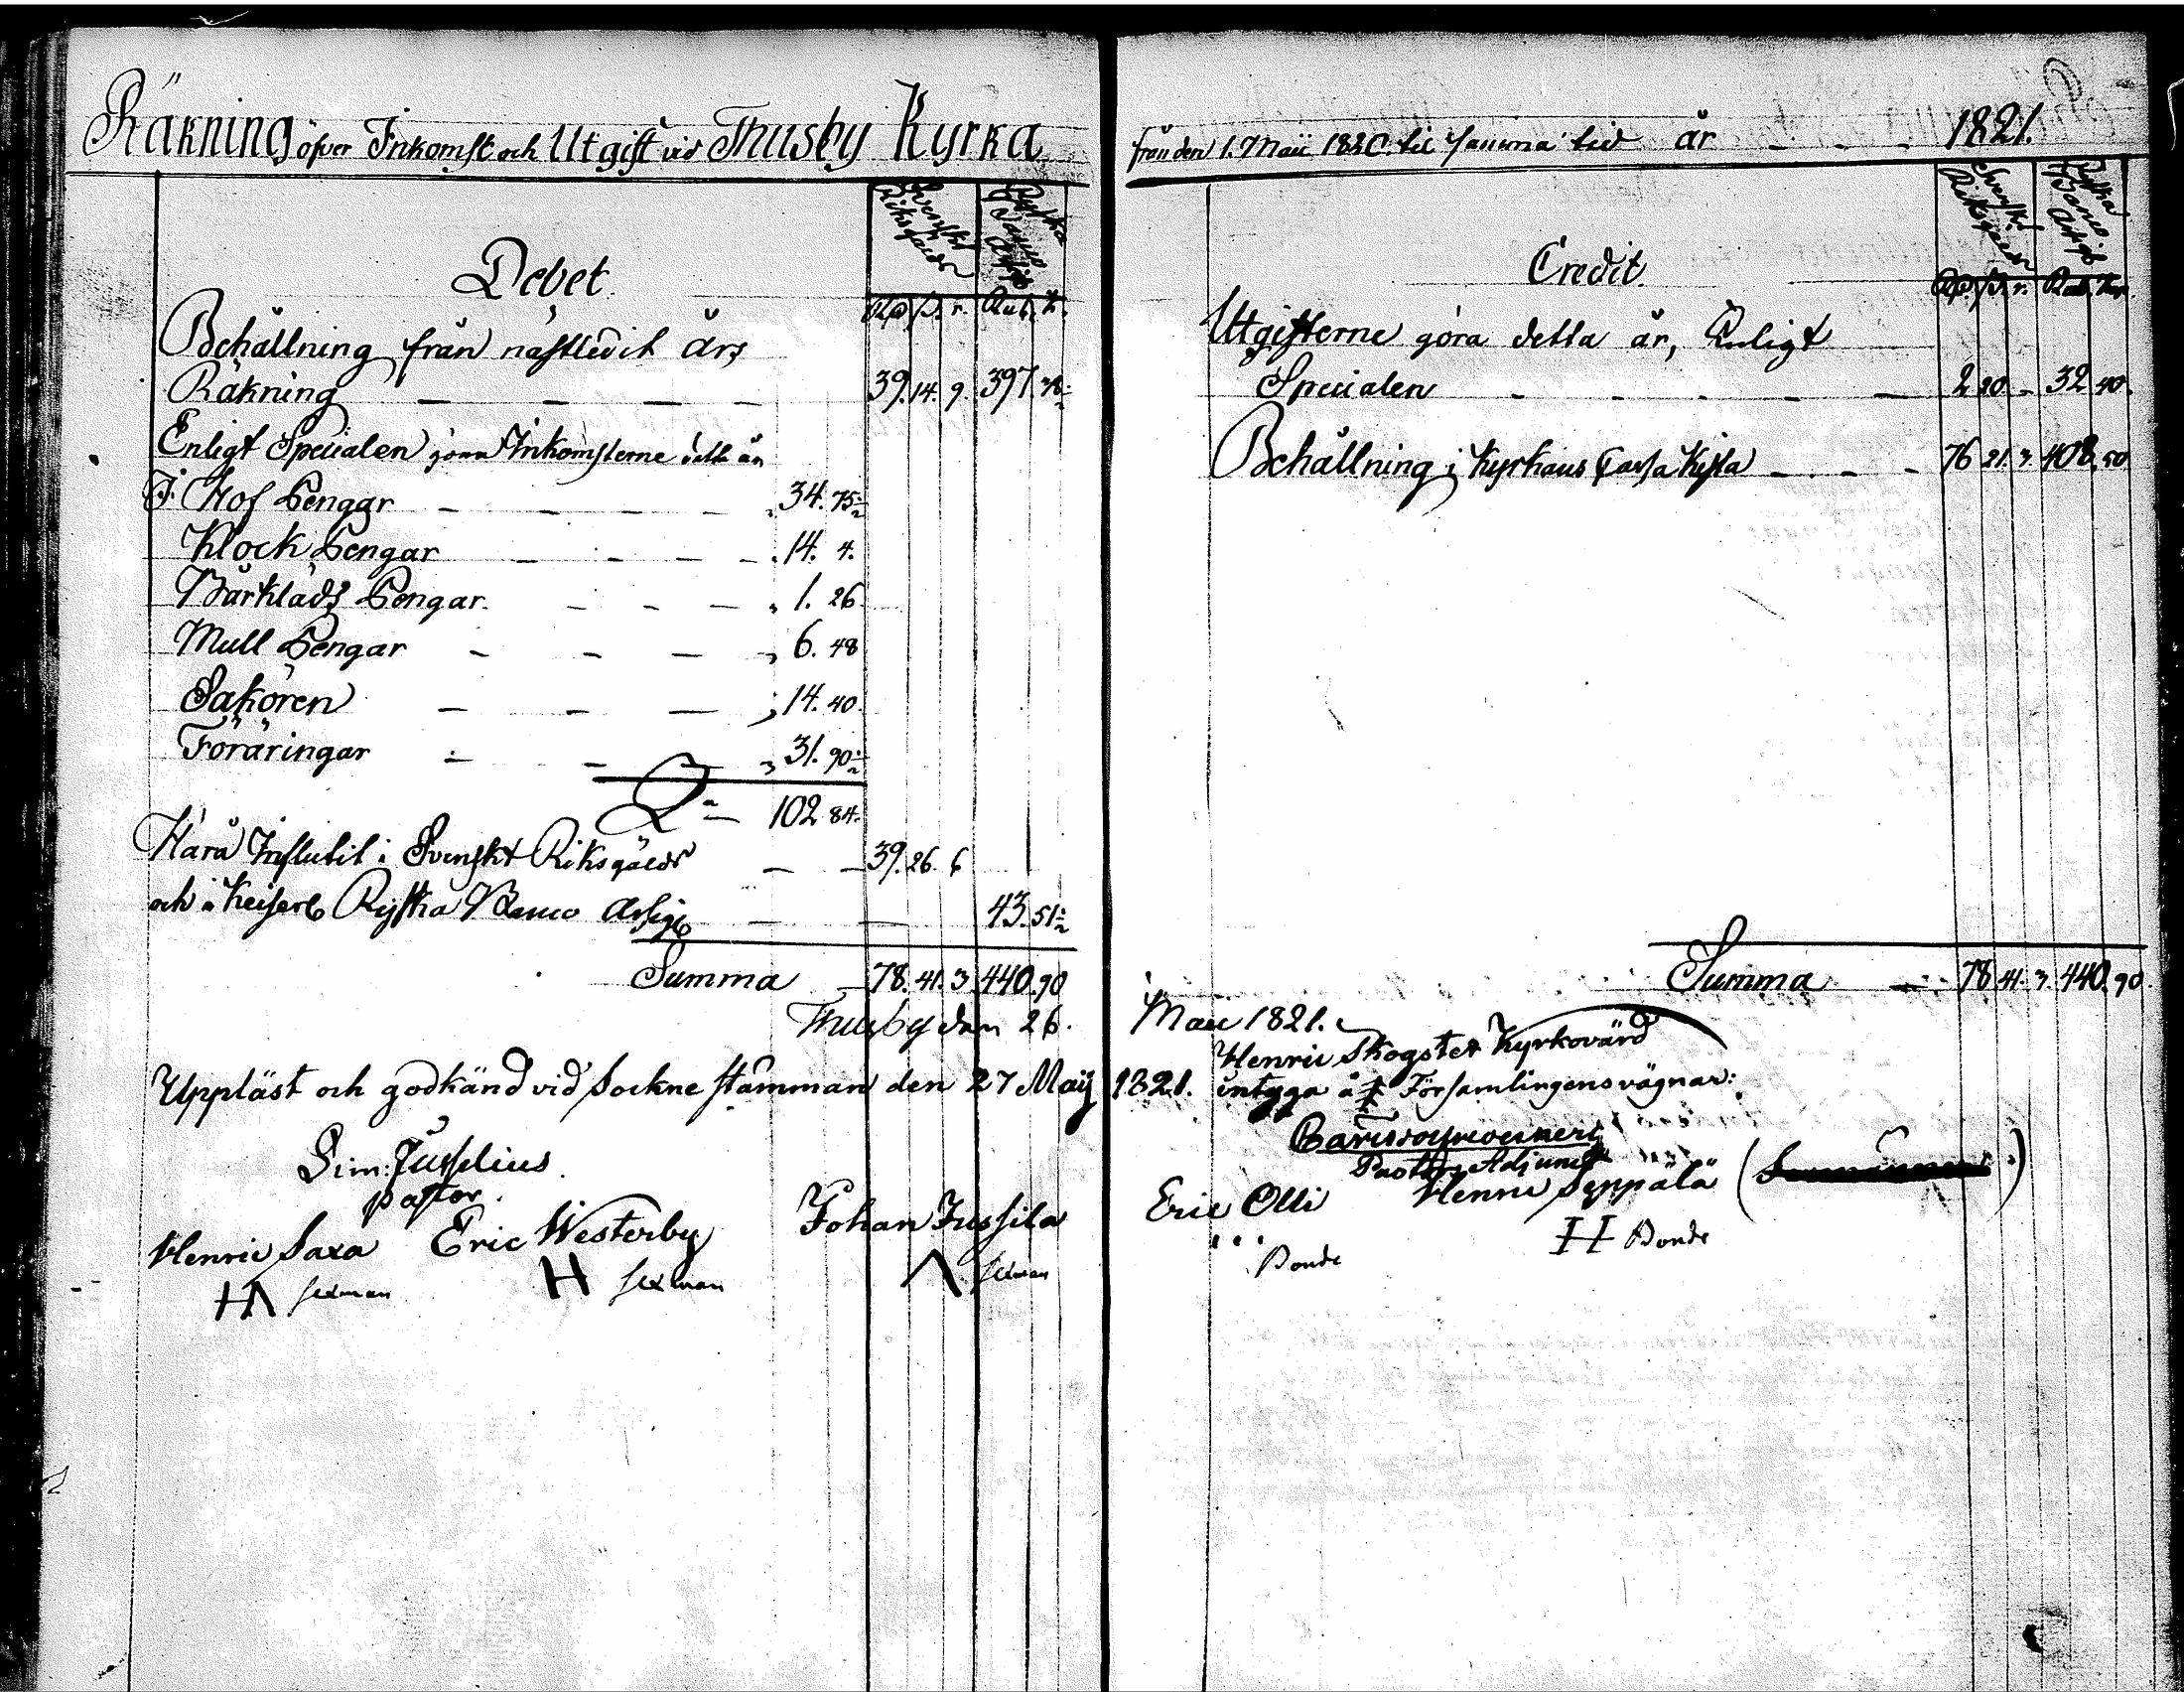 Räkning öfver Inkomst och Utgift vid Thusby Kyrka
från den 1. Maii 1820. til samma tid år - - - 1821.
Svenskt Riksgälds
Ryska Banco Assign.
Debet
Rd. ß. r. Rub. k.
Behållning från nästledit års
Räkning — — — — 39. 14. 9. 397. 38½
Enligt Specialen göra Inkomsterne detta år
I Hof Pengar — — — — 34. 75½
Klock Pengar — — — — 14. 4.
Bårkläds Pengar — — — 1. 26.
Mull Pengar — — — — 6. 48
Saköron — — — 14. 40.
Föräringar — — — 31. 90½
102 84.
Häraf Influtit i Svenskt Riksgälds — — 39. 26. 6
och i Keiserl. Ryska Banco Assign — — 43. 51½
Summa — 78. 41. 3 440. 90
Thusby den 26.
Uppläst och godkänd vid Sockne stämman den 27 Maij
Sim: Jusselius
pastor.
Henric Saxa Eric Westerby Johan Jussila
sexman sexman sexman
Svenskt Riksgälds
Ryska Banco Assign
Credit
Rd. ß. r. Rub. kop.
Utgifterne göra detta år, Enligt
Specialen - - - - — 2 20. - 32 40.
Behållning i Kyrkans Cassa Kista - - - 76 21. 3. 408. 50
Summa — 78 41. 3. 440. 90
Maii 1821.
Henric Skogster Kyrkovärd
1821. intyga å Församlingens vägnar:
Pastors Adjunct
Eric Olli Henric Seppälä
Bonde H Bonde